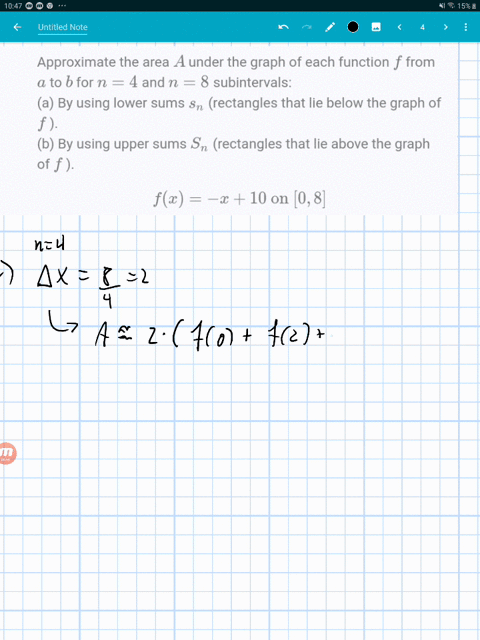 10:47
15%
Untitled Note
4
Approximate the area A under the graph of each function f from
a to b for n = 4 and n = 8 subintervals:
(a) By using lower sums sₙ (rectangles that lie below the graph of
f ).
(b) By using upper sums Sₙ (rectangles that lie above the graph
of f ).
f(x) = −x + 10 on [0, 8]
n=4
) Δx = 8/4 = 2
A ≈ 2 · ( f(0) + f(2) +
m